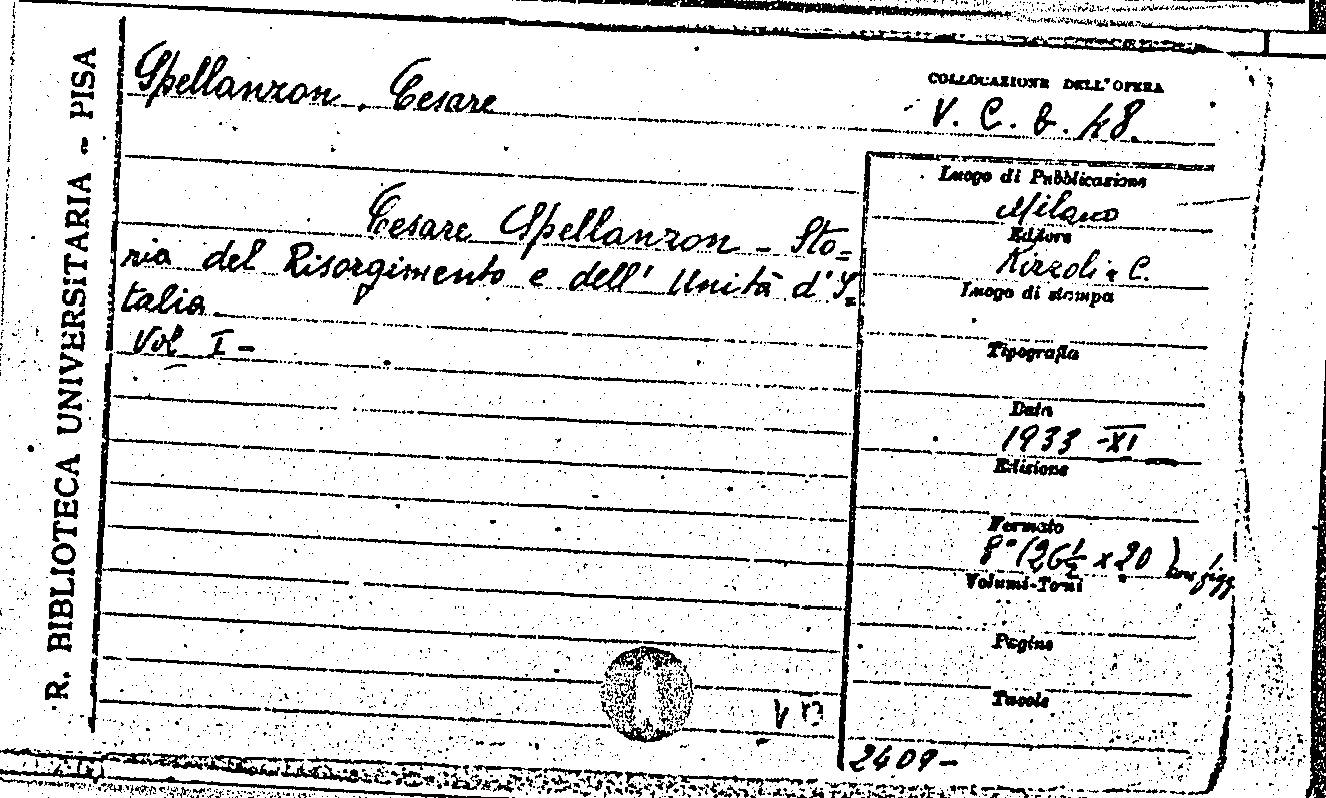 R. BIBLIOTECA UNIVERSITARIA - PISA
Spellanzon, Cesare
COLLOCAZIONE DELL'OPERA
V. C. b. 48.
Cesare Spellanzon - Sto=
ria del Risorgimento e dell'Unità d'I=
talia.
Vol I -
Luogo di Pubblicazione
Milano
Editore
Rizzoli e C.
Luogo di stampa
Tipografia
Data
1933 - XI
Edizione
Formato
8° (26 1/2 x 20) con figg
Volumi-Tomi
Pagine
Tavole
2409-